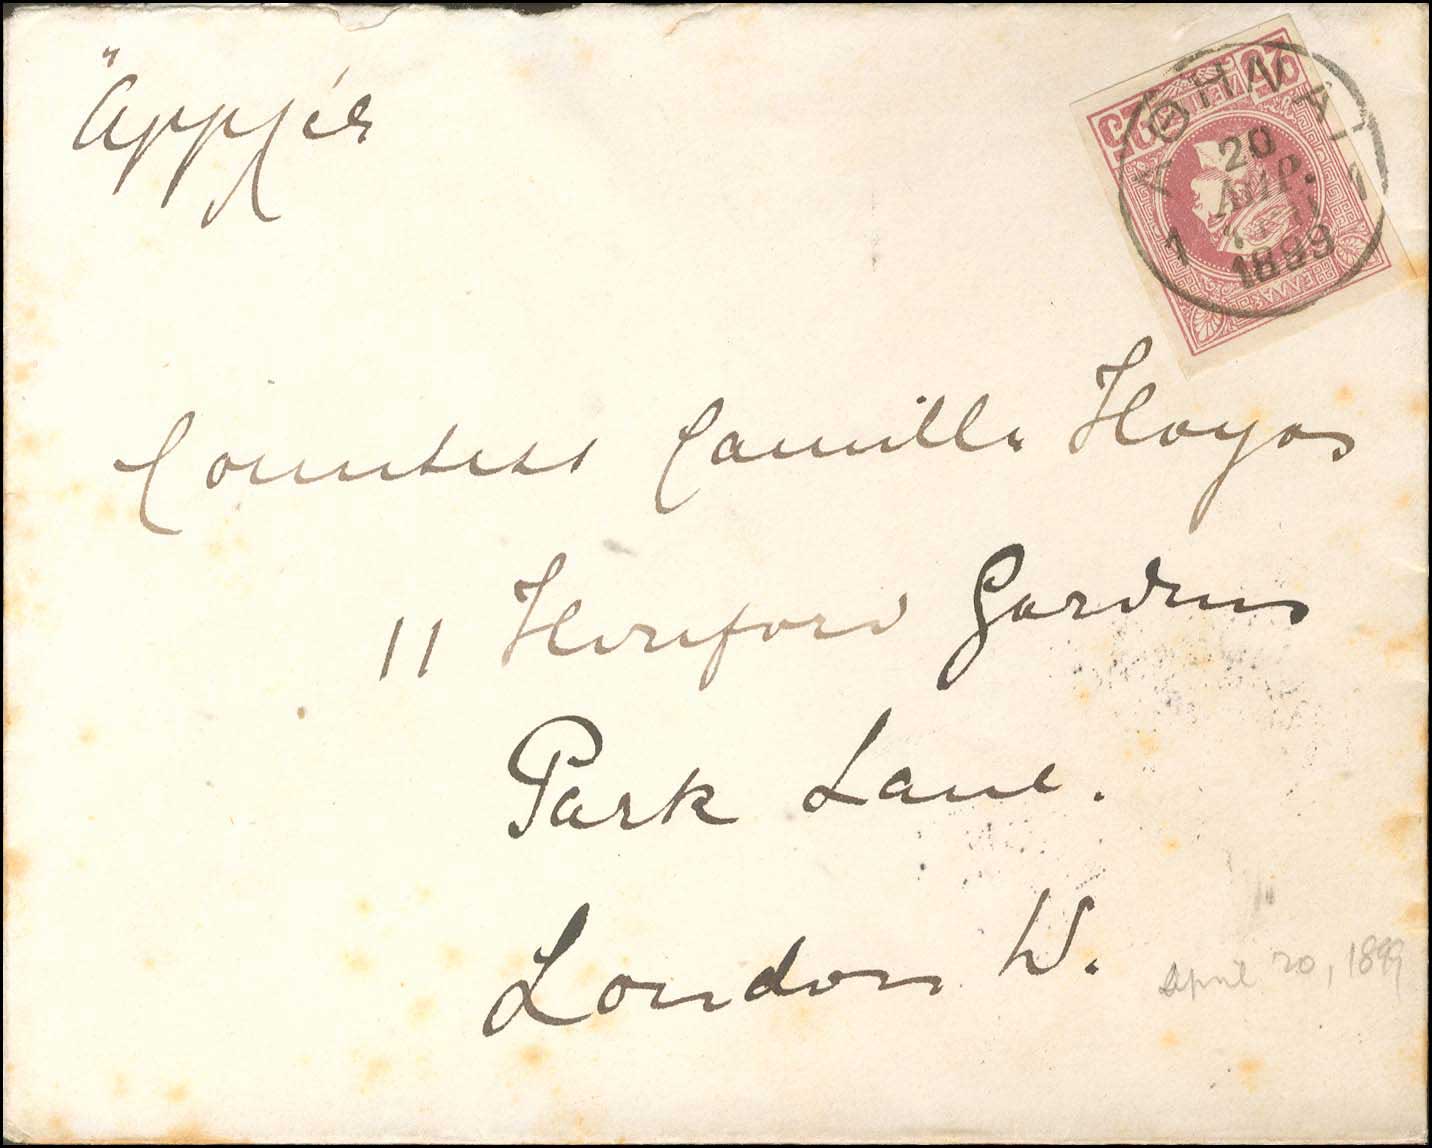 Ἀγγλία
25 25
ΑΘΗΝΑΙ
1 1
20
ΑΠΡ.
1899
ΕΛΛΑΣ
Countess Camilla Hoyos
11 Hereford Gardens
Park Lane.
London W.
April 20, 1899